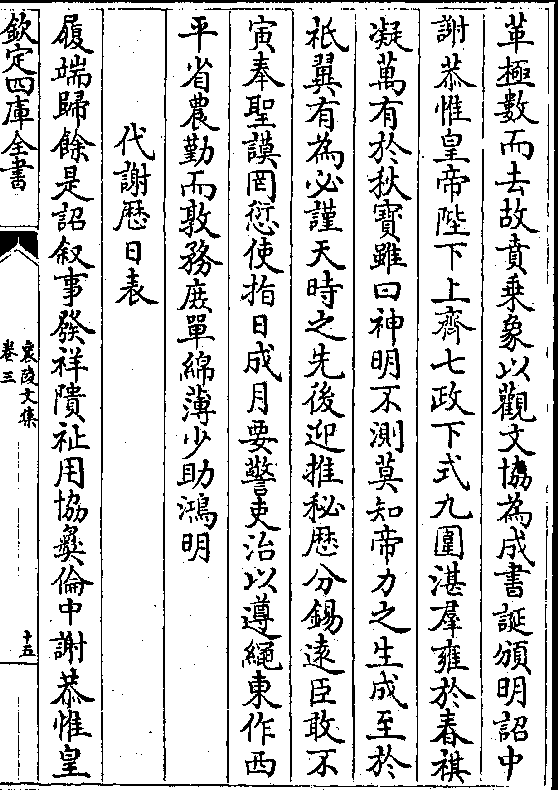 革極數而去故賁乗象以觀文協為成書誕頒明詔中
謝恭惟皇帝陛下上齊七政下式九圍湛羣雍於春祺
凝萬有於秋寶雖曰神明不測莫知帝力之生成至於
祇翼有為必謹天時之先後迎推秘厯分錫逺臣敢不
寅奉聖謨罔愆使指日成月要警吏治以遵繩東作西
平省農勤而敦務庻單綿薄少助鴻明
代謝厯日表
履端歸餘是詔叙事發祥隤祉用協彜倫中謝恭惟皇
欽定四庫全書
襄陵文集
卷三
十五